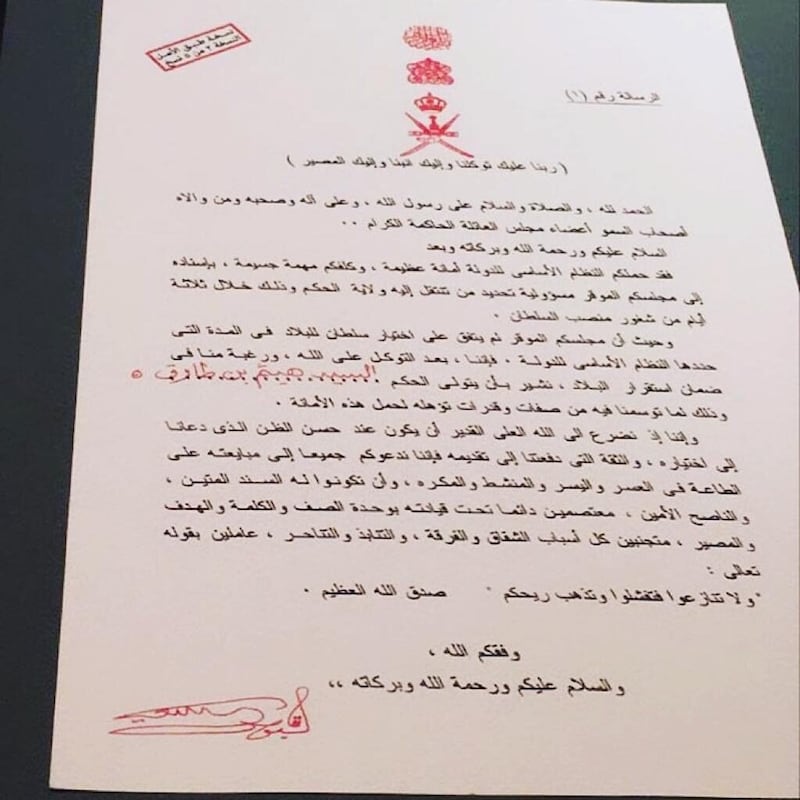 نسخة طبق الأصل
النسخة ٢ من ٥ نسخ
الرسالة رقم (١)
( ربنا عليك توكلنا وإليك انبنا وإليك المصير )
الحمد لله ، والصلاة والسلام على رسول الله ، وعلى آله وصحبه ومن والاه
أصحاب السمو أعضاء مجلس العائلة الحاكمة الكرام ..
السلام عليكم ورحمة الله وبركاته وبعد
فقد حملكم النظام الأساسى للدولة أمانة عظيمة ، وكلفكم مهمة جسيمة ، بإسناده
إلى مجلسكم الموقر مسؤولية تحديد من تنتقل إليه ولاية الحكم وذلك خلال ثلاثة
أيام من شغور منصب السلطان .
وحيث أن مجلسكم الموقر لم يتفق على اختيار سلطان للبلاد فى المدة التى
حددها النظام الأساسى للدولة . فإننا ، بعد التوكل على الله ، ورغبة منا فى
ضمان استقرار البلاد ، نشير بأن يتولى الحكم السيد هيثم بن طارق
وذلك لما توسمنا فيه من صفات وقدرات تؤهله لحمل هذه الأمانة .
وإننا إذ نضرع الى الله العلى القدير أن يكون عند حسن الظن الذى دعانا
إلى اختياره ، والثقة التى دفعتنا إلى تقديمه فإننا ندعوكم جميعا إلى مبايعته على
الطاعة فى العسر واليسر والمنشط والمكره ، وأن تكونوا له السند المتين ،
والناصح الأمين ، معتصمين دائما تحت قيادته بوحدة الصف والكلمة والهدف
والمصير ، متجنبين كل أسباب الشقاق والفرقة ، والتنابذ والتناحر ، عاملين بقوله
تعالى :
"ولا تنازعوا فتفشلوا وتذهب ريحكم " صدق الله العظيم .
وفقكم الله ،
والسلام عليكم ورحمة الله وبركاته ،،